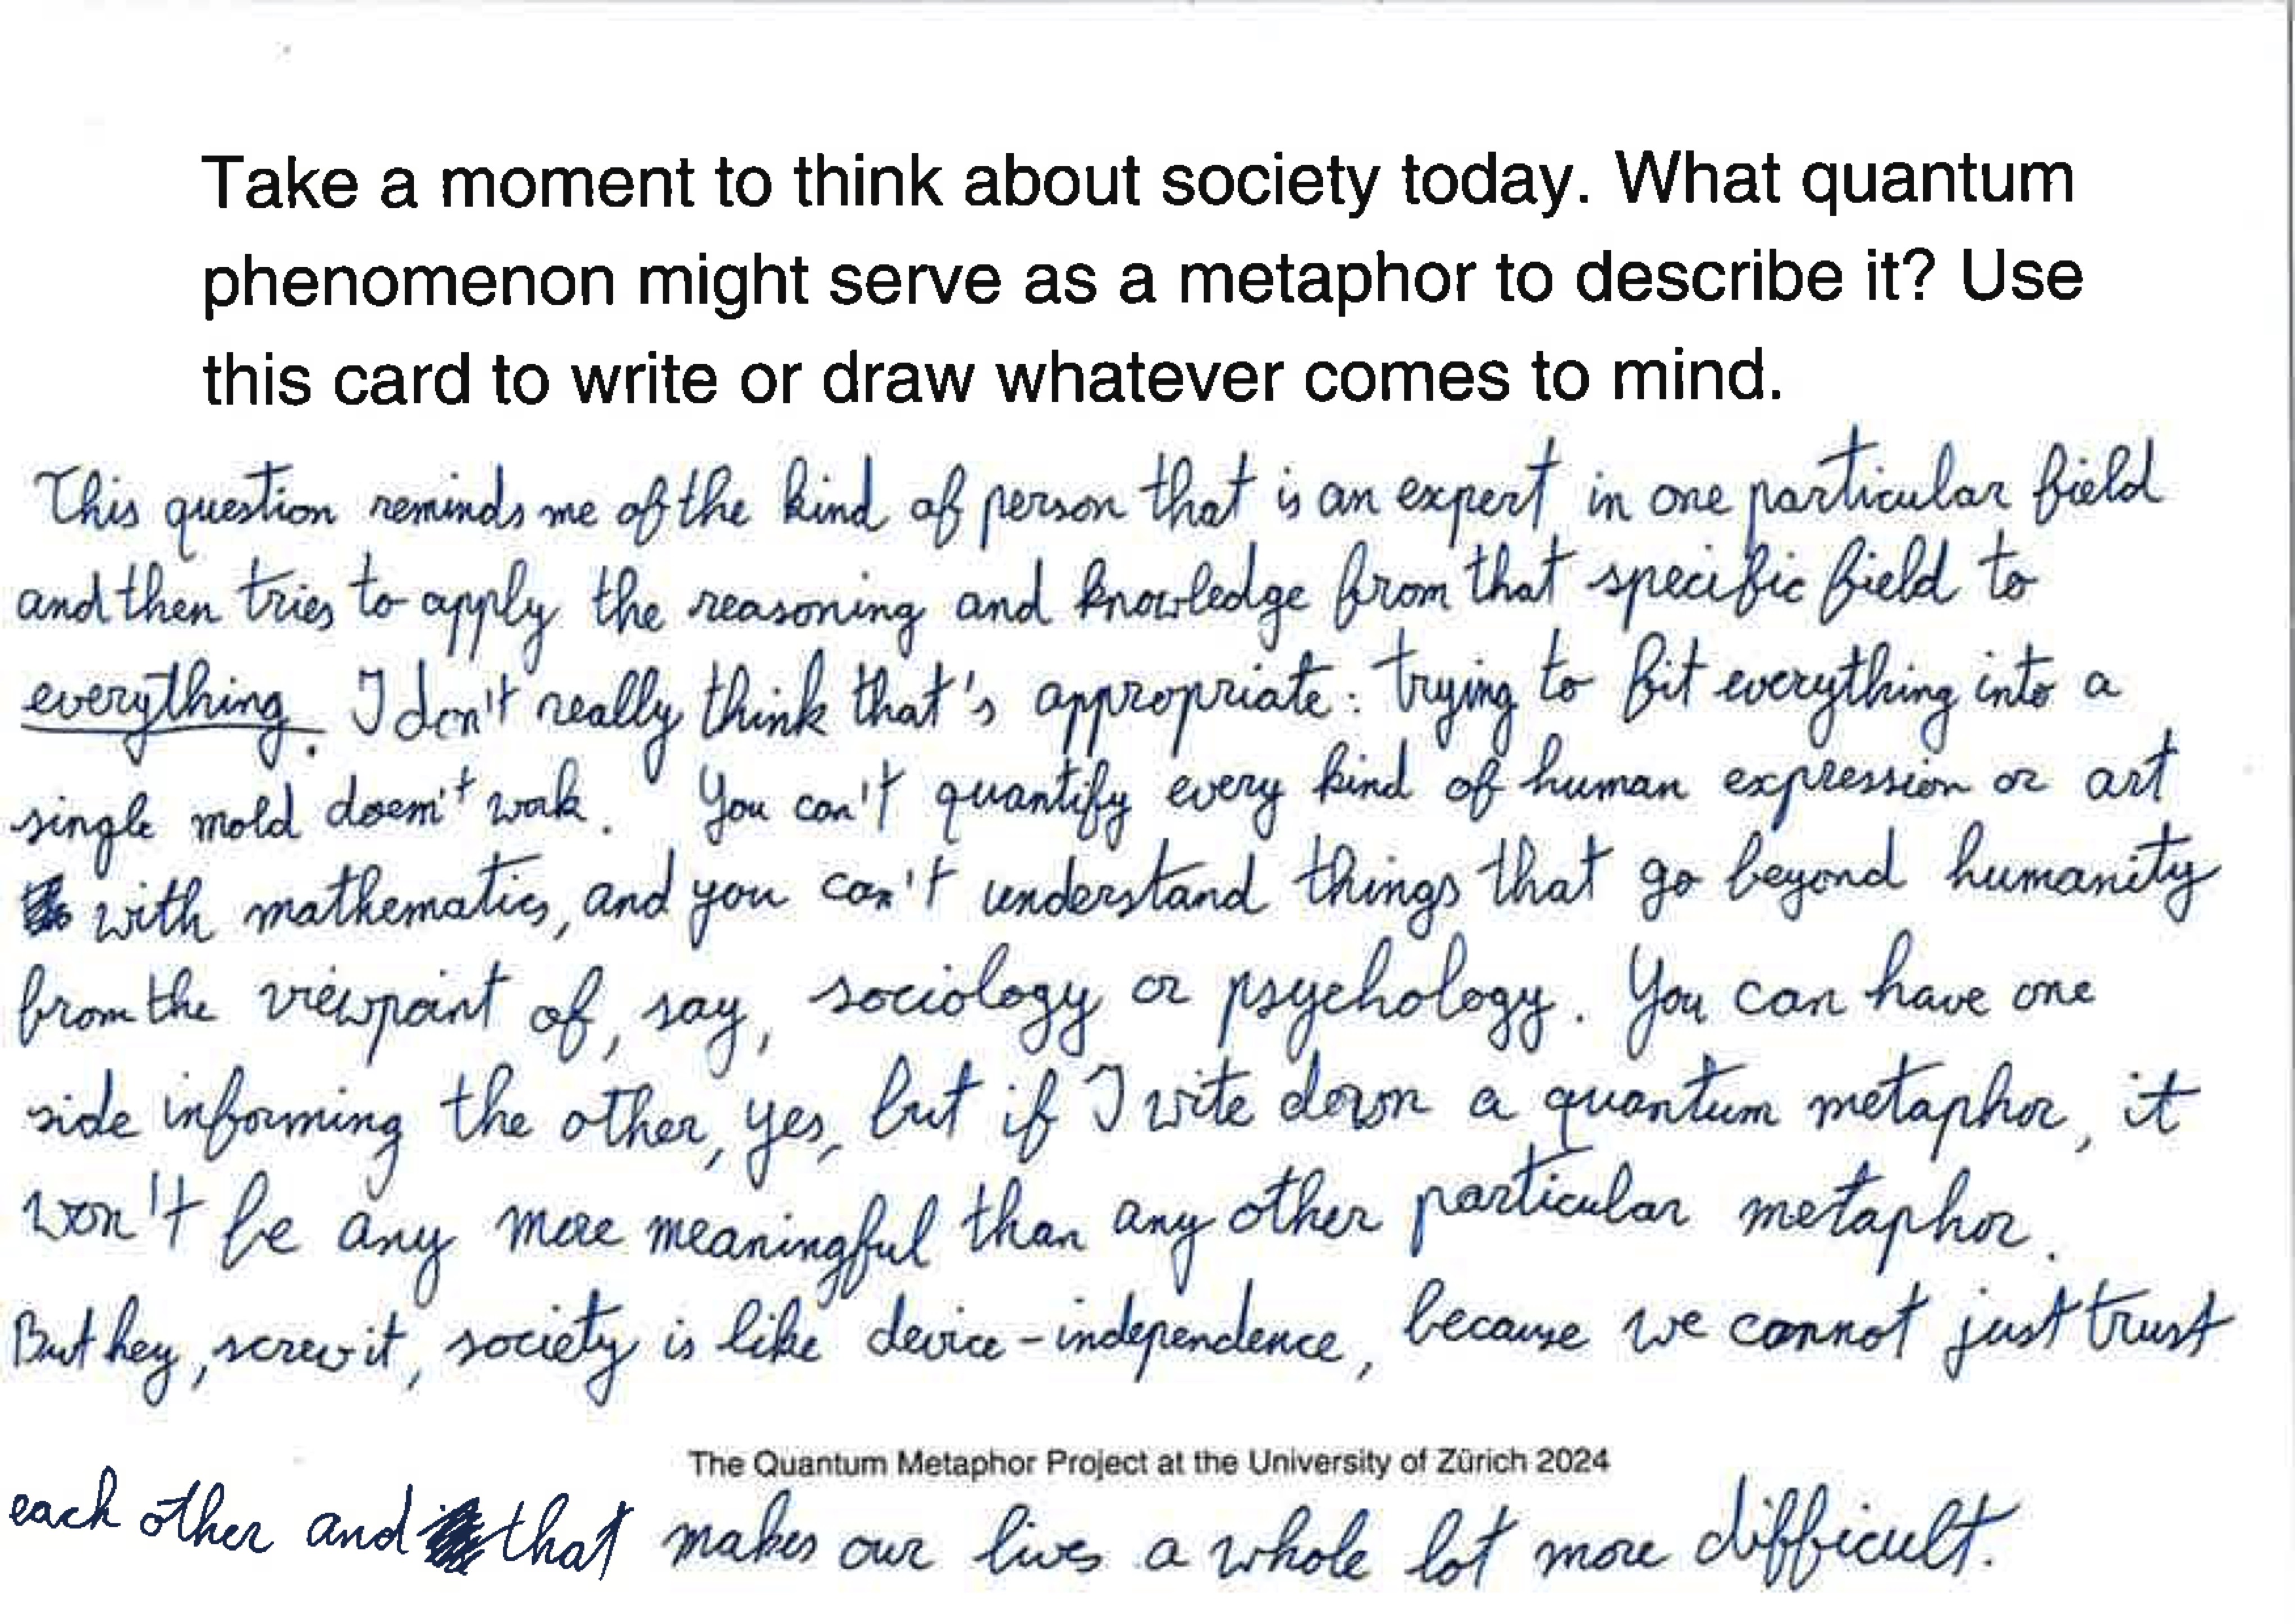 Take a moment to think about society today. What quantum
phenomenon might serve as a metaphor to describe it? Use
this card to write or draw whatever comes to mind.
This question reminds me of the kind of person that is an expert in one particular field
and then tries to apply the reasoning and knowledge from that specific field to
everything. I don't really think that's appropriate: trying to fit everything into a
single mold doesn't work. You can't quantify every kind of human expression or art
with mathematics, and you can't understand things that go beyond humanity
from the viewpoint of, say, sociology or psychology. You can have one
side informing the other, yes, but if I write down a quantum metaphor, it
won't be any more meaningful than any other particular metaphor.
But hey, screw it, society is like device-independence, because we cannot just trust
The Quantum Metaphor Project at the University of Zürich 2024
each other and that makes our lives a whole lot more difficult.